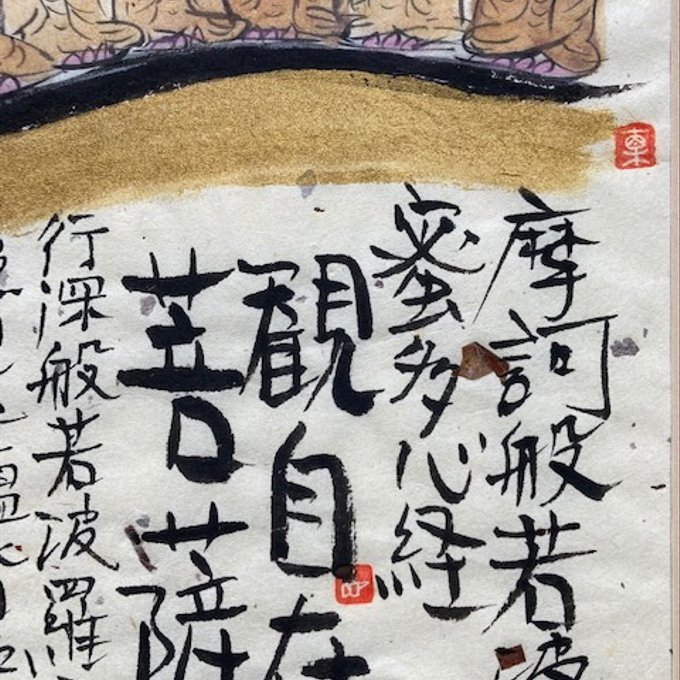 摩訶般若波
蜜多心経
観自在
菩薩
行深般若波羅